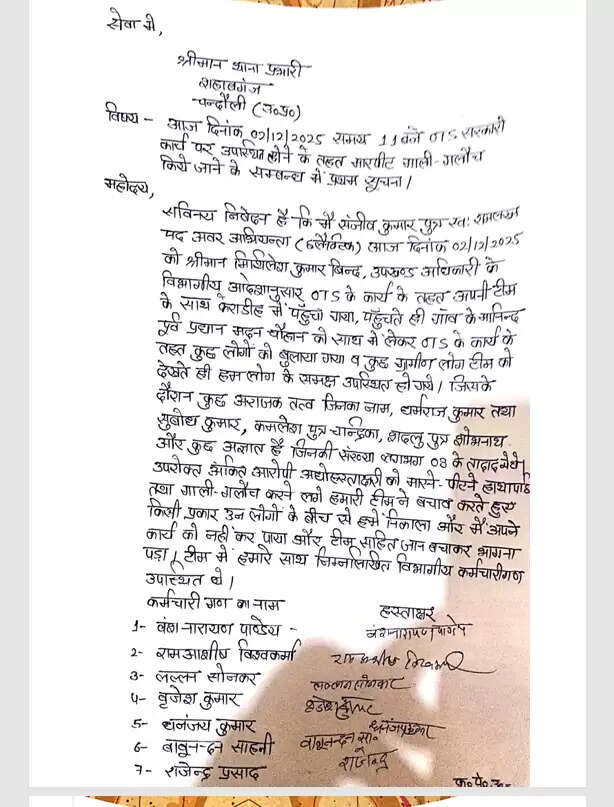 सेवा में,
श्रीमान थाना प्रभारी
शहाबगंज
चन्दौली (उ०प्र०)
विषय - आज दिनांक 02/12/2025 समय 11 बजे OTS सरकारी
कार्य पर उपस्थित होने के तहत मारपीट गाली-गलौच
किये जाने के सम्बन्ध में प्रथम सूचना।
महोदय,
सविनय निवेदन है कि मैं संजीव कुमार पुत्र स्व:
पद अवर अभियन्ता () आज दिनांक 02/12/2025
को श्रीमान मिथिलेश कुमार बिन्द, उपखण्ड अधिकारी के
विभागीय आदेशानुसार OTS के कार्य के तहत अपनी टीम
के साथ केराडीह में पहुँचा गया, पहुँचते ही गाँव के मानिन्द
पूर्व प्रधान मदन चौहान को साथ में लेकर OTS के कार्य के
तहत कुछ लोगों को बुलाया गया व कुछ ग्रामीण लोग टीम को
देखते ही हम लोग के समक्ष उपस्थित हो गये। जिसके
दौरान कुछ अराजक तत्व जिनका नाम, धर्मराज कुमार तथा
सुबोध कुमार, कमलेश पुत्र चन्द्रिका, पुत्र शोभनाथ
और कुछ अज्ञात है जिनकी संख्या लगभग 08 के तादाद में थे।
उपरोक्त अंकित आरोपी अधोहस्ताक्षरी को मारने-पीटने हाथापाई
तथा गाली-गलौच करने लगे हमारी टीम ने बचाव करते हुए
किसी प्रकार उन लोगों के बीच से हमें निकाला और मैं अपने
कार्य को नहीं कर पाया और टीम सहित जान बचाकर भागना
पड़ा। टीम में हमारे साथ निम्नलिखित विभागीय कर्मचारीगण
उपस्थित थे।
कर्मचारी गण का नाम हस्ताक्षर
1- बंशनारायण पाण्डेय - बंशनारायण पाण्डेय
2- रामआशीष विश्वकर्मा
3- लल्लन सोनकर लल्लन सोनकर
4- बृजेश कुमार
5- धनंजय कुमार धनंजय कुमार
6- बाबूनन्दन साहनी बाबूनन्दन सा०
7- राजेन्द्र प्रसाद राजेन्द्र
क्र०पे०उ०-